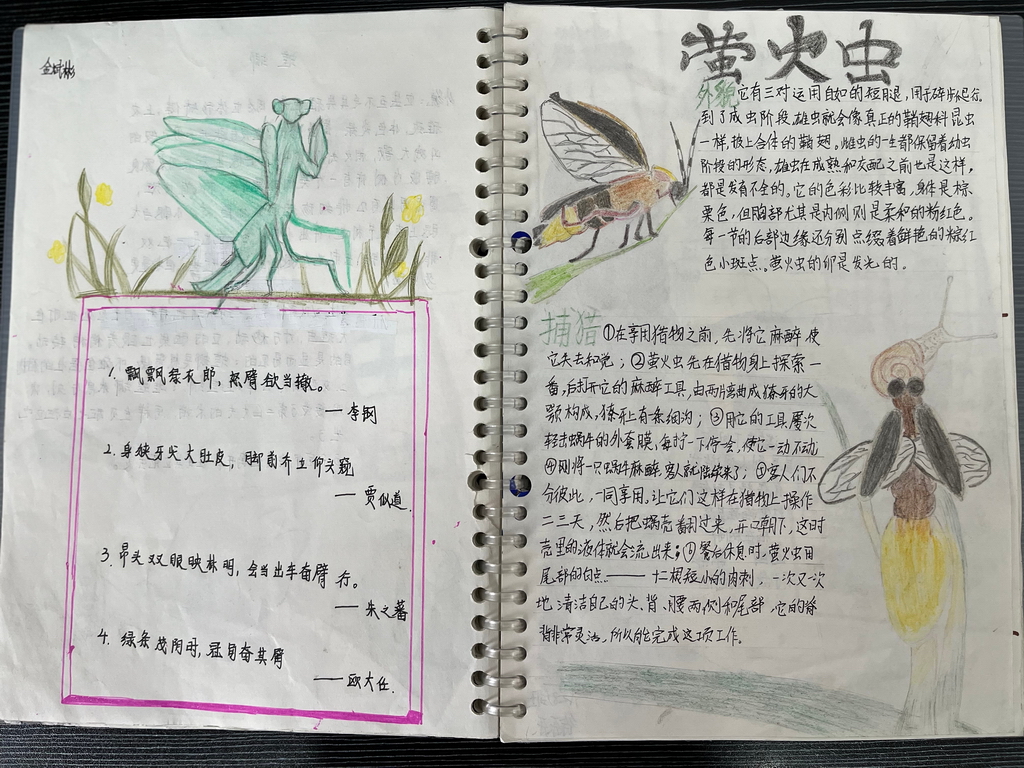 1. 飘飘祭衣郎，怒臂欲当辙。
—李纲
2. 身狭牙尖大肚皮，脚前乔立仰头窥
— 贾似道.
3. 昂头双眼映林明，会当出车奋臂行。
— 朱之蕃
4. 绿条茂阴中，猛自奋其臂
—— 欧大任.
萤火虫
外貌 它有三对运用自如的短腿，用于碎步疾行.
到了成虫阶段，雄虫就会像真正的鞘翅科昆虫
一样，披上合体的鞘翅。雌虫的一生都保留着幼虫
阶段的形态，雄虫在成熟和交配之前也是这样，
都是发育不全的。它的色彩比较丰富，身体是棕
栗色，但胸部尤其是内侧则是柔和的粉红色。
每一节的后部边缘还分别点缀着鲜艳的棕红
色小斑点。萤火虫的卵是发光的。
捕猎 ①在享用猎物之前，先将它麻醉，使
它失去知觉；②萤火虫先在猎物身上探索一
番，后打开它的麻醉工具，由两片弯曲成獠牙的大
颚构成，獠牙上有条细沟；③用它的工具屡次
轻击蜗牛的外套膜，每拧一下停会，使它一动不动
④刚将一只蜗牛麻醉，客人就陆续来了；⑤客人们不
分彼此，一同享用，让它们这样在猎物上操作
二三天，然后把蜗壳翻过来，开口朝下，这时
壳里的液体就会流出来；⑥餐后休息时，萤火虫用
尾部的白点——十二根短小的肉刺，一次又一次
地清洁自己的头、背、腰两侧和尾部，它的脊
背非常灵活，所以能完成这项工作。